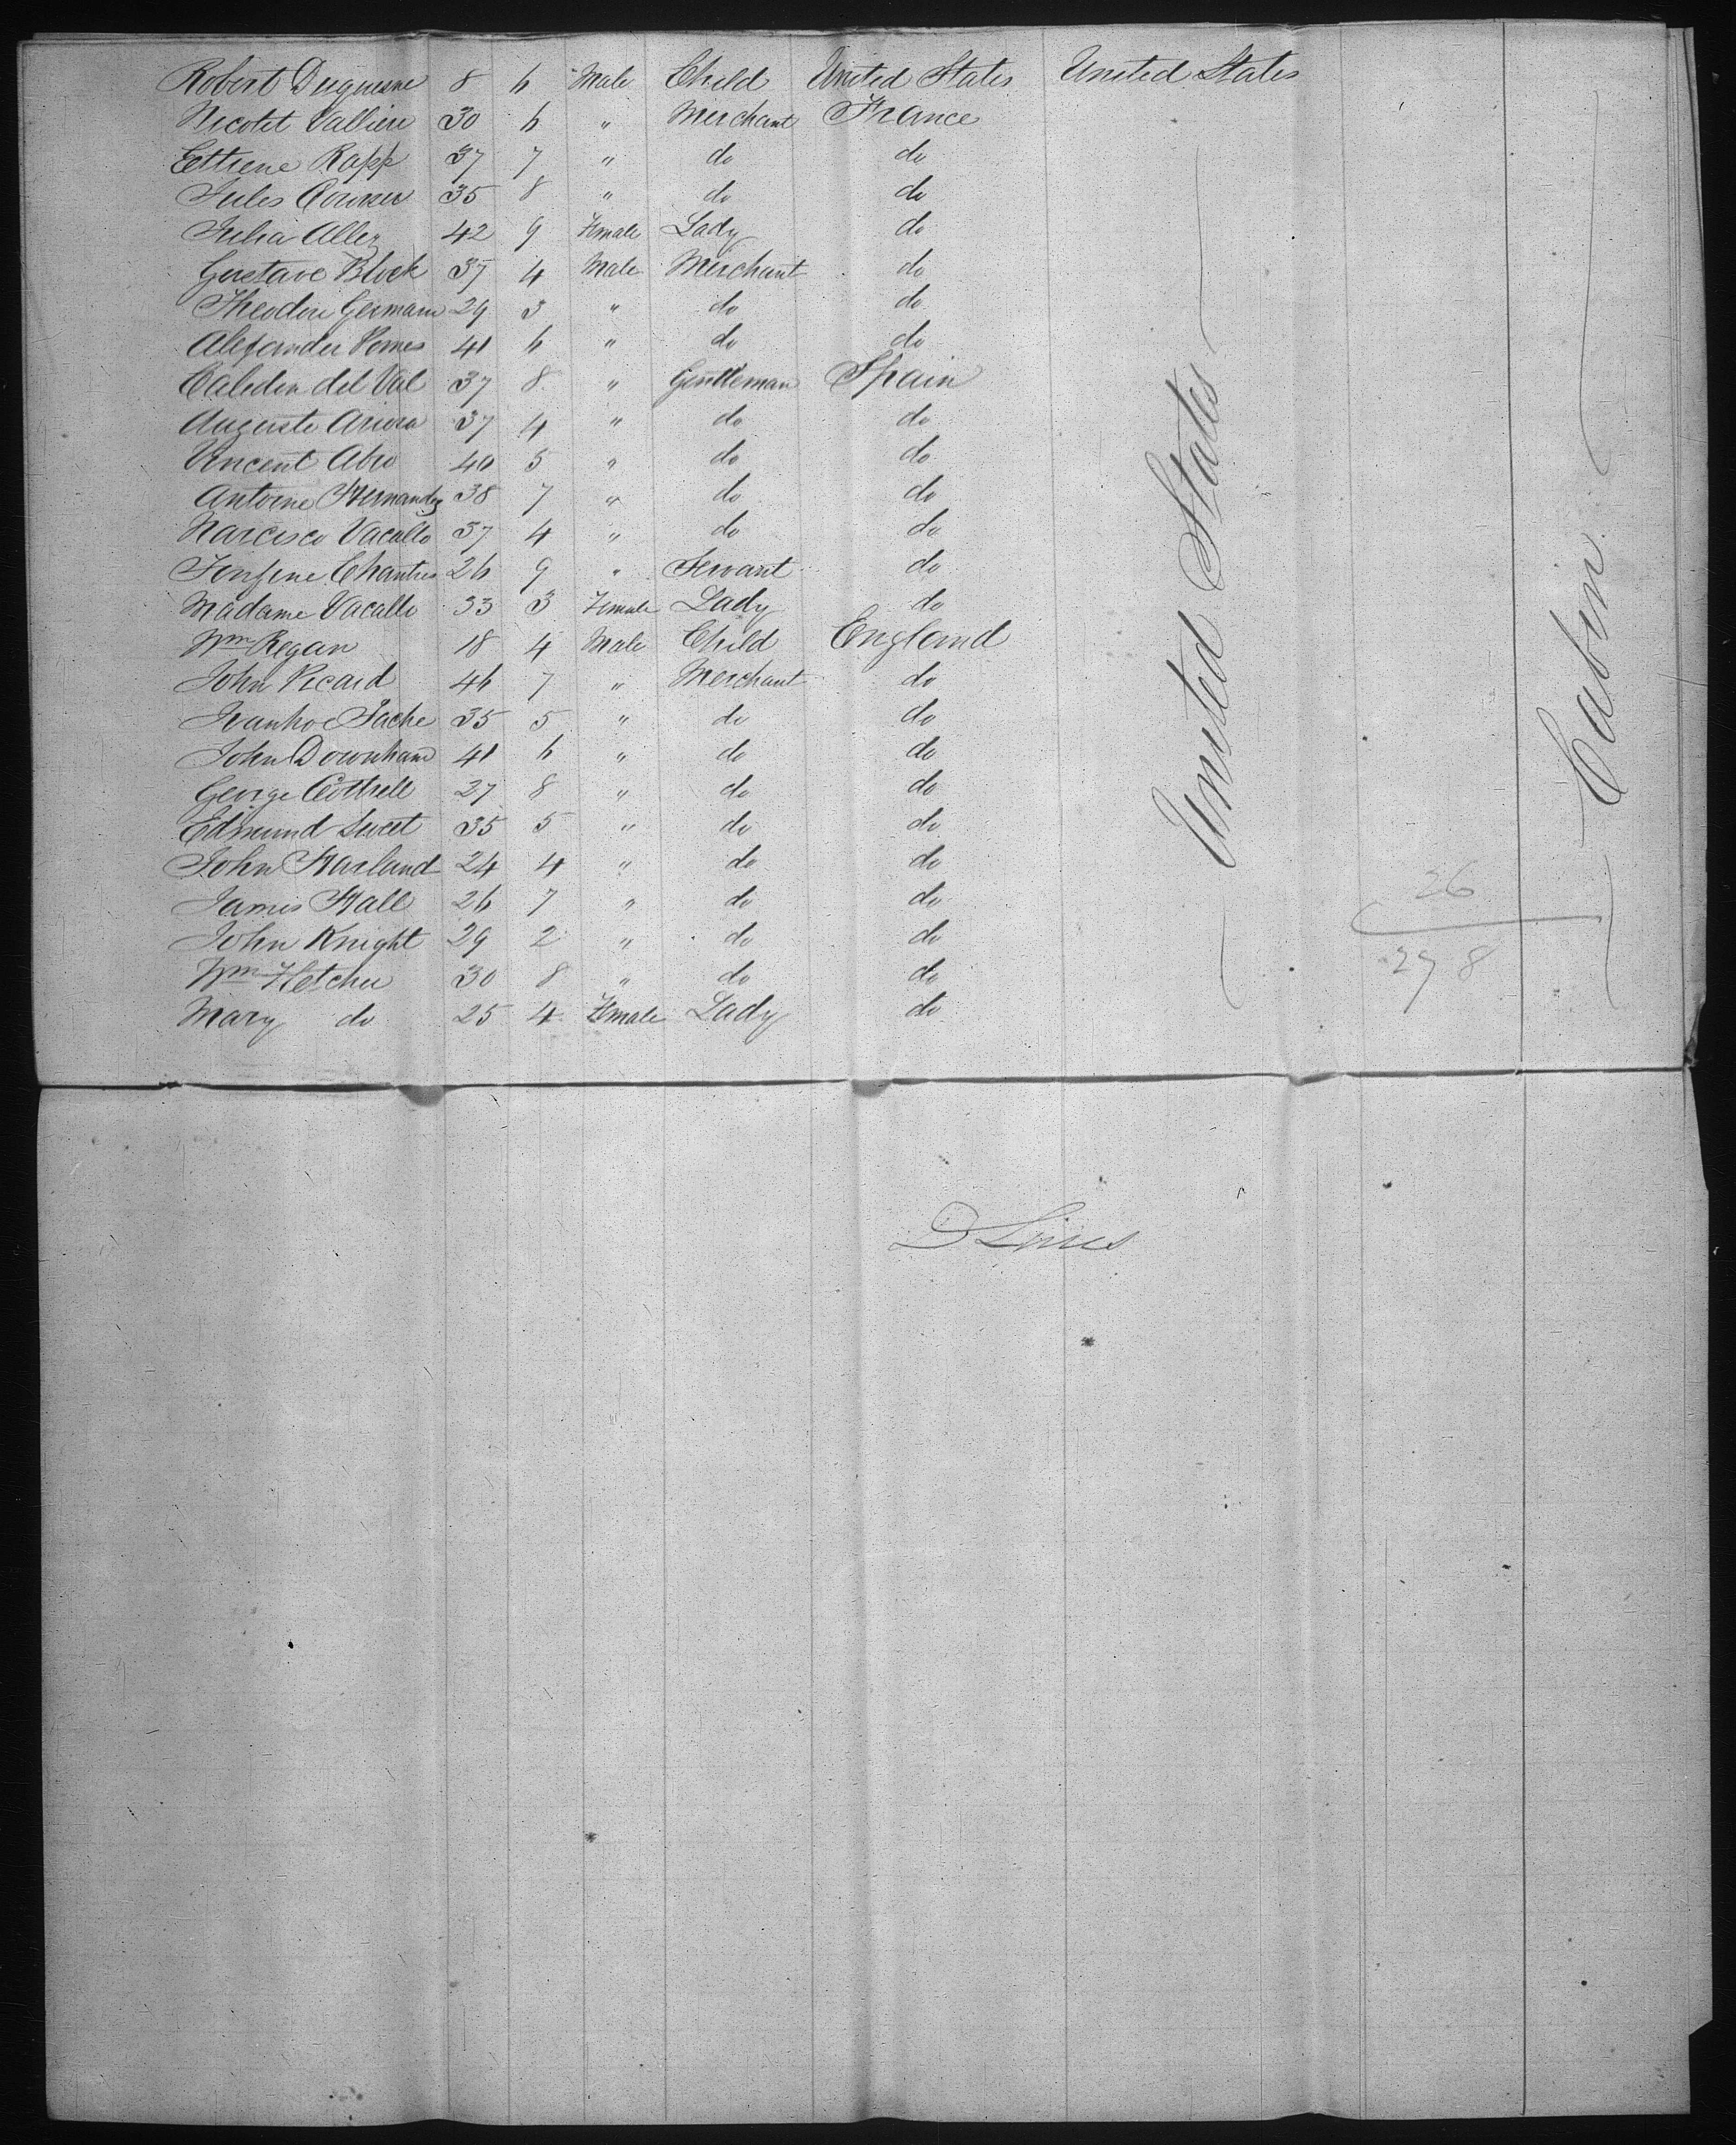 Robert Duquesne 8 6 Male Child United States United States
Nicolet Valliere 30 6 " Merchant France
Ettiene Rapp 37 7 " do do
Jules 35 8 " do do
Julia Allez 42 9 Female Lady do
Gustave Block 37 4 Male Merchant do
Theodore Germann 29 3 " do do
Alexander Pomes 41 6 " do do
Caledon del Val 37 8 " Gentleman Spain
Auguste 37 4 " do do
Vincent Abio 40 5 " do do
Antoine Hernandez 38 7 " do do
Narcisco Vacallo 37 4 " do do
Chantres 26 9 " Servant do
Madame Vacallo 33 3 Female Lady do
Wm Regan 18 4 Male Child England
John Picard 46 7 " Merchant do
Ivanhoe Tache 35 5 " do do
John Downham 41 6 " do do
George Cottrell 27 8 " do do
Edmund Sweet 35 5 " do do
John Harland 24 4 " do do
James Hall 26 7 " do do
John Knight 29 2 " do do
Wm Fletcher 30 8 " do do
Mary do 25 4 Female Lady do
United States
Cabin
26
278